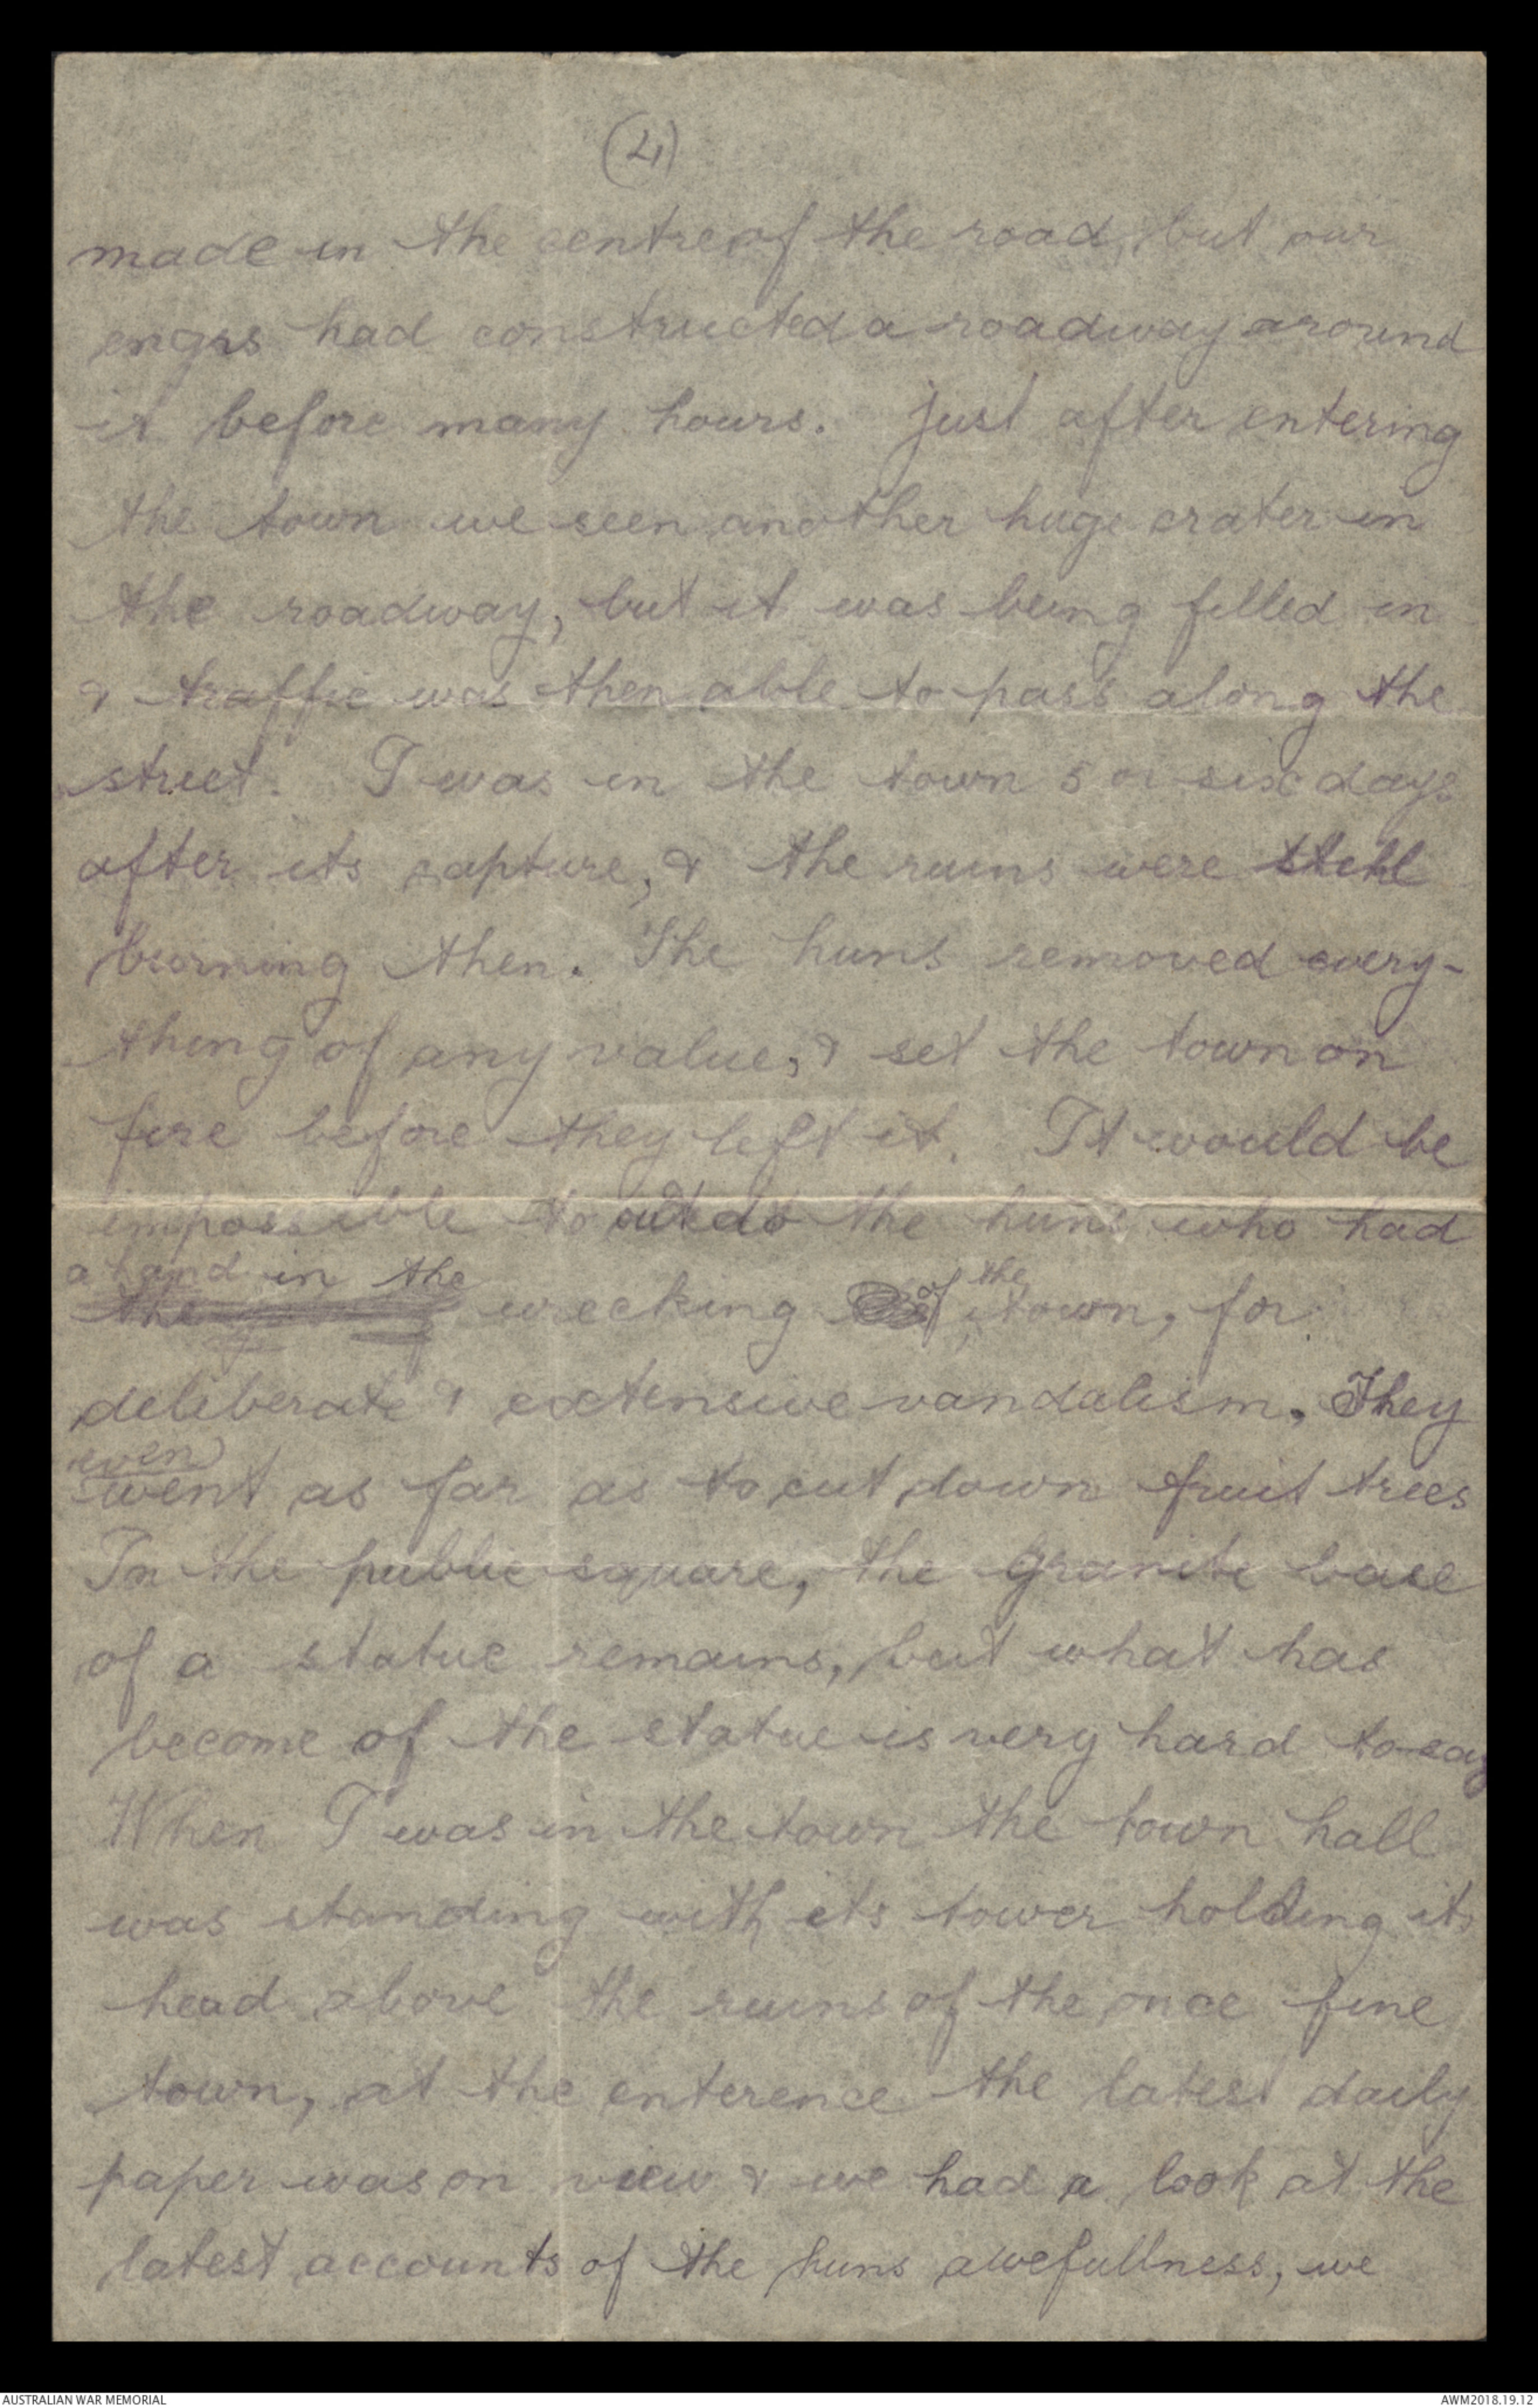 (4)
made in the centre of the road, but our
engrs had constructed a roadway around
it before many hours. Just after entering
the town we seen another huge crater in
the roadway, but it was being filled in
& traffic was then able to pass along the
street. I was in the town 5 or six days
after its capture, & the ruins were still
burning then. The huns removed every-
thing of any value, & set the town on
fire before they left it. It would be
impossible to outdo the huns who had
a hand in the
the wrecking of the town, for
deliberate & extensive vandalism. They
even
went as far as to cut down fruit trees
In the public square, the granite base
of a statue remains, but what has
become of the statue is very hard to say
When I was in the town the town hall
was standing with its tower holding its
head above the ruins of the once fine
town, at the enterence the latest daily
paper was on view & we had a look at the
latest accounts of the huns awefullness, we
AUSTRALIAN WAR MEMORIAL
AWM2018.19.12